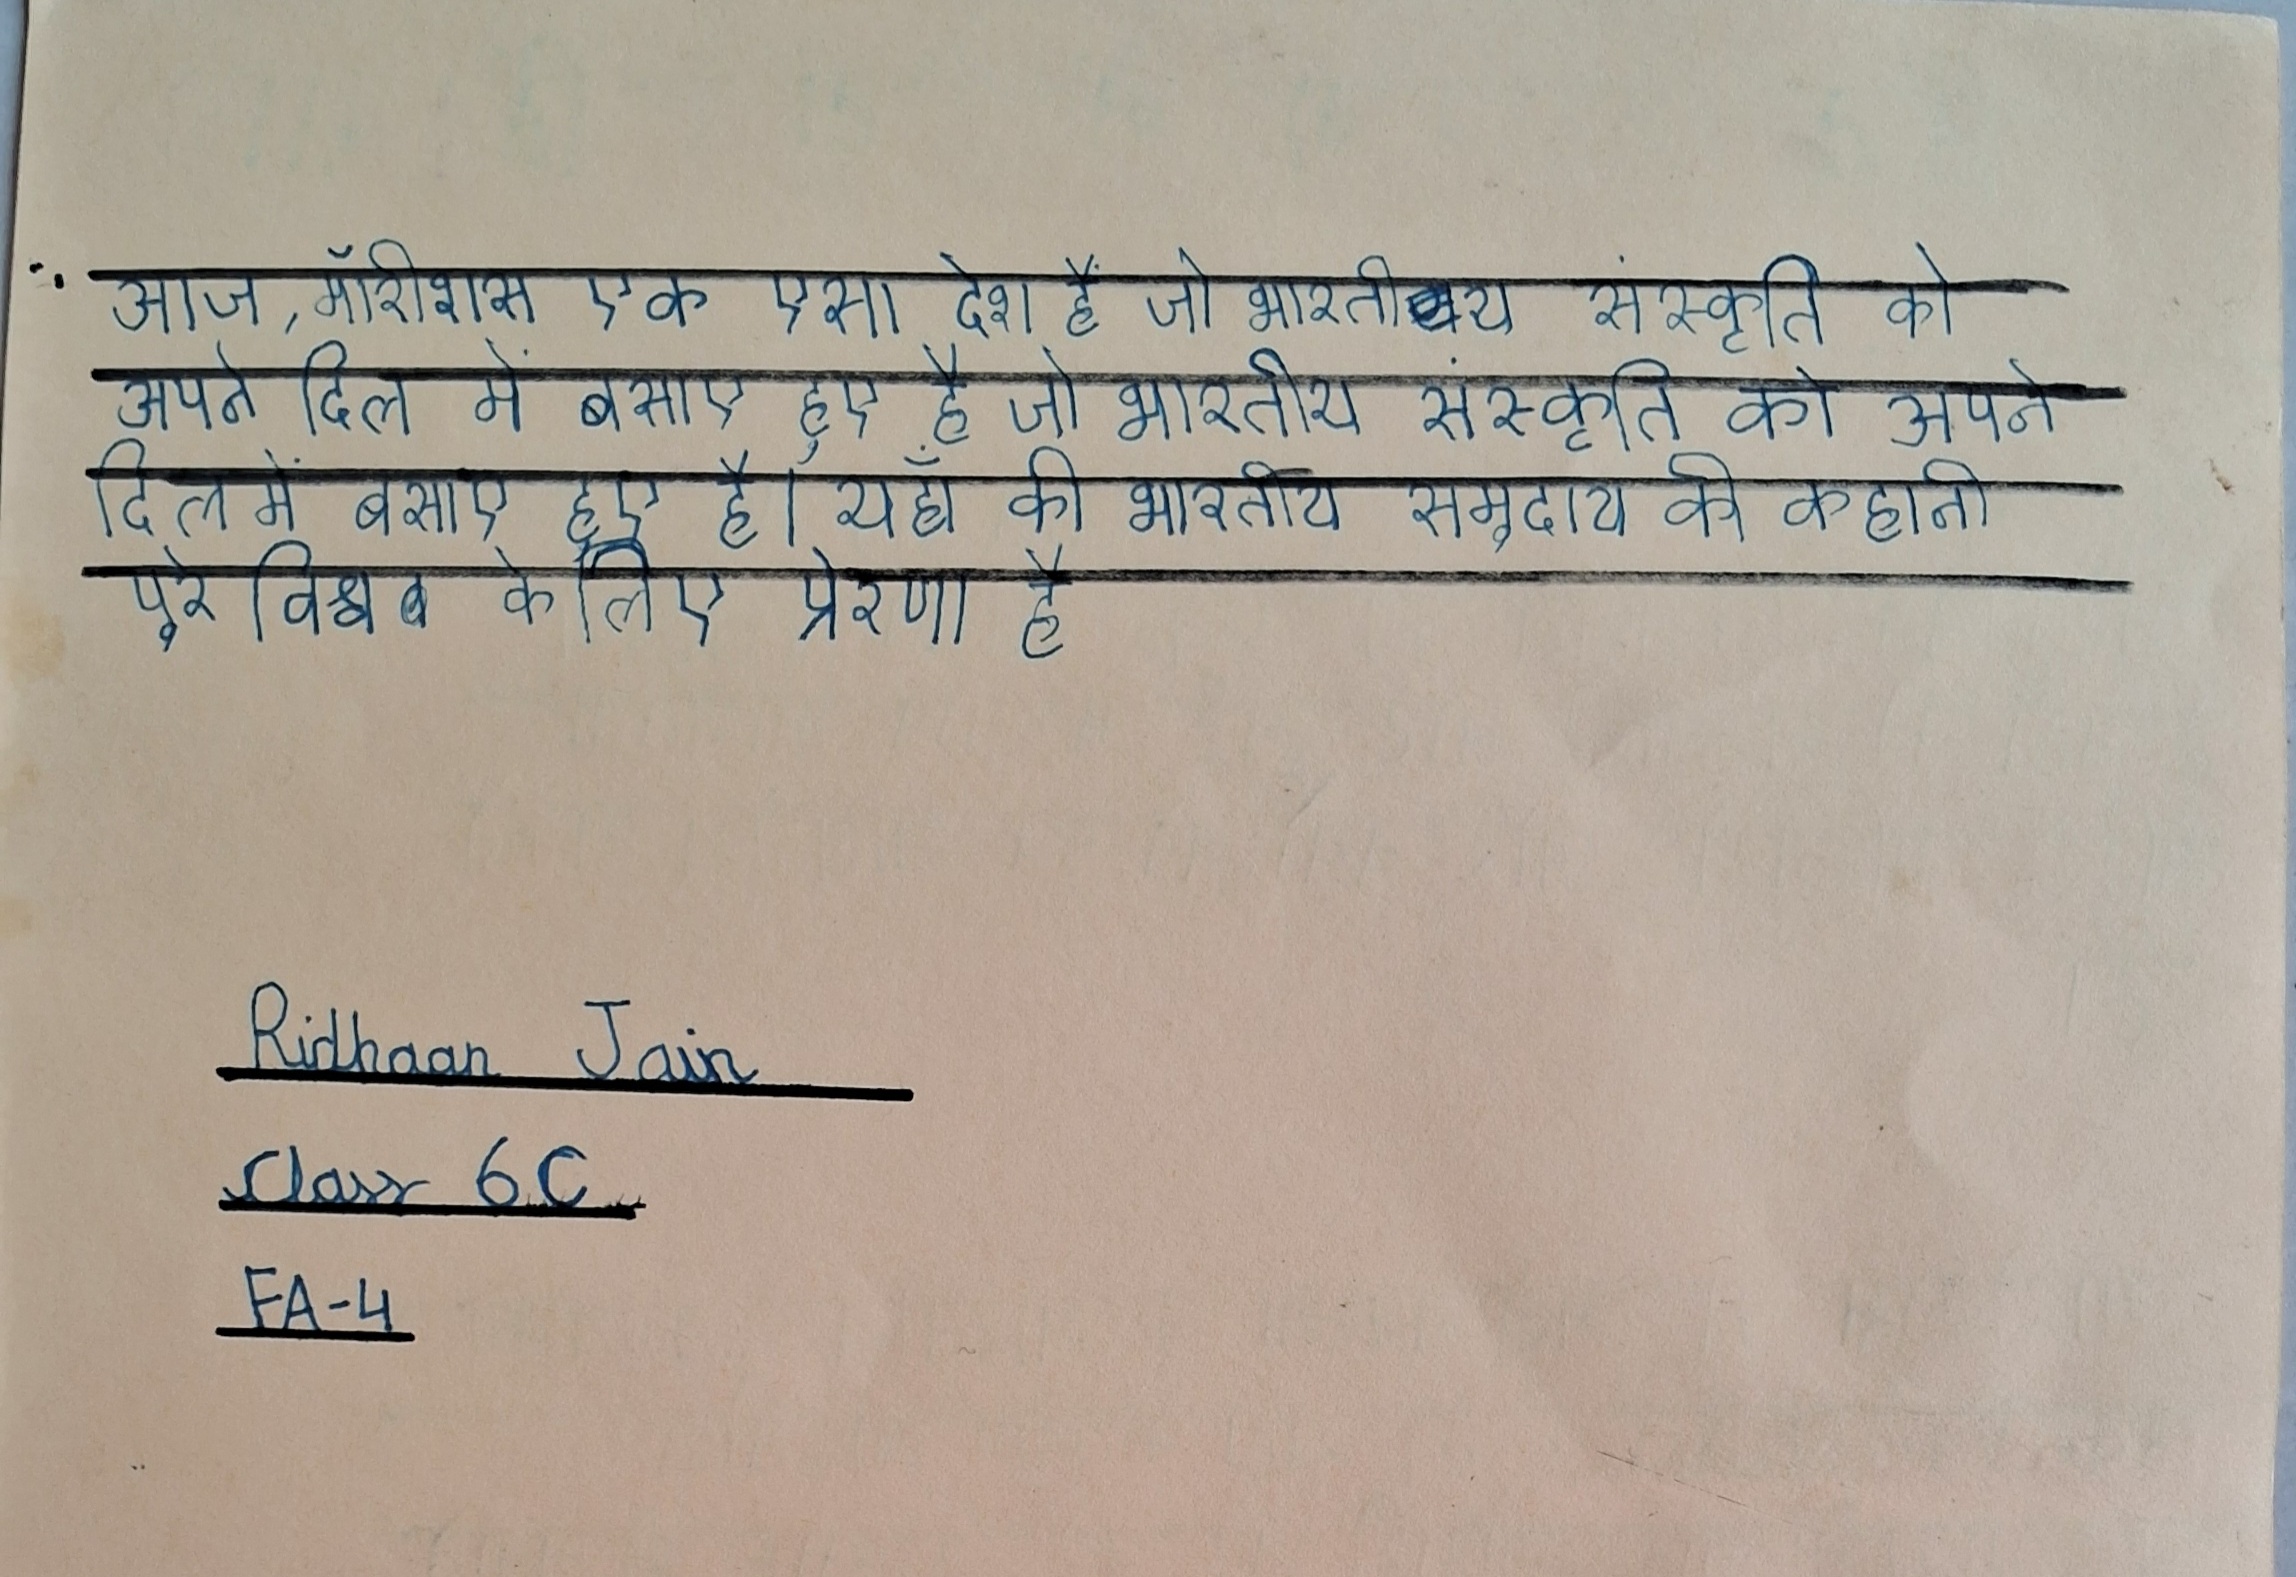 आज, मॉरीशस एक एसा देश हैं जो भारतीय संस्कृति को
अपने दिल में बसाए हुए है जो भारतीय संस्कृति को अपने
दिल में बसाए हुए है। यहाँ की भारतीय समुदाय की कहानी
पूरे विश्व के लिए प्रेरणा है
Ridhaan Jain
Class 6C
FA-4